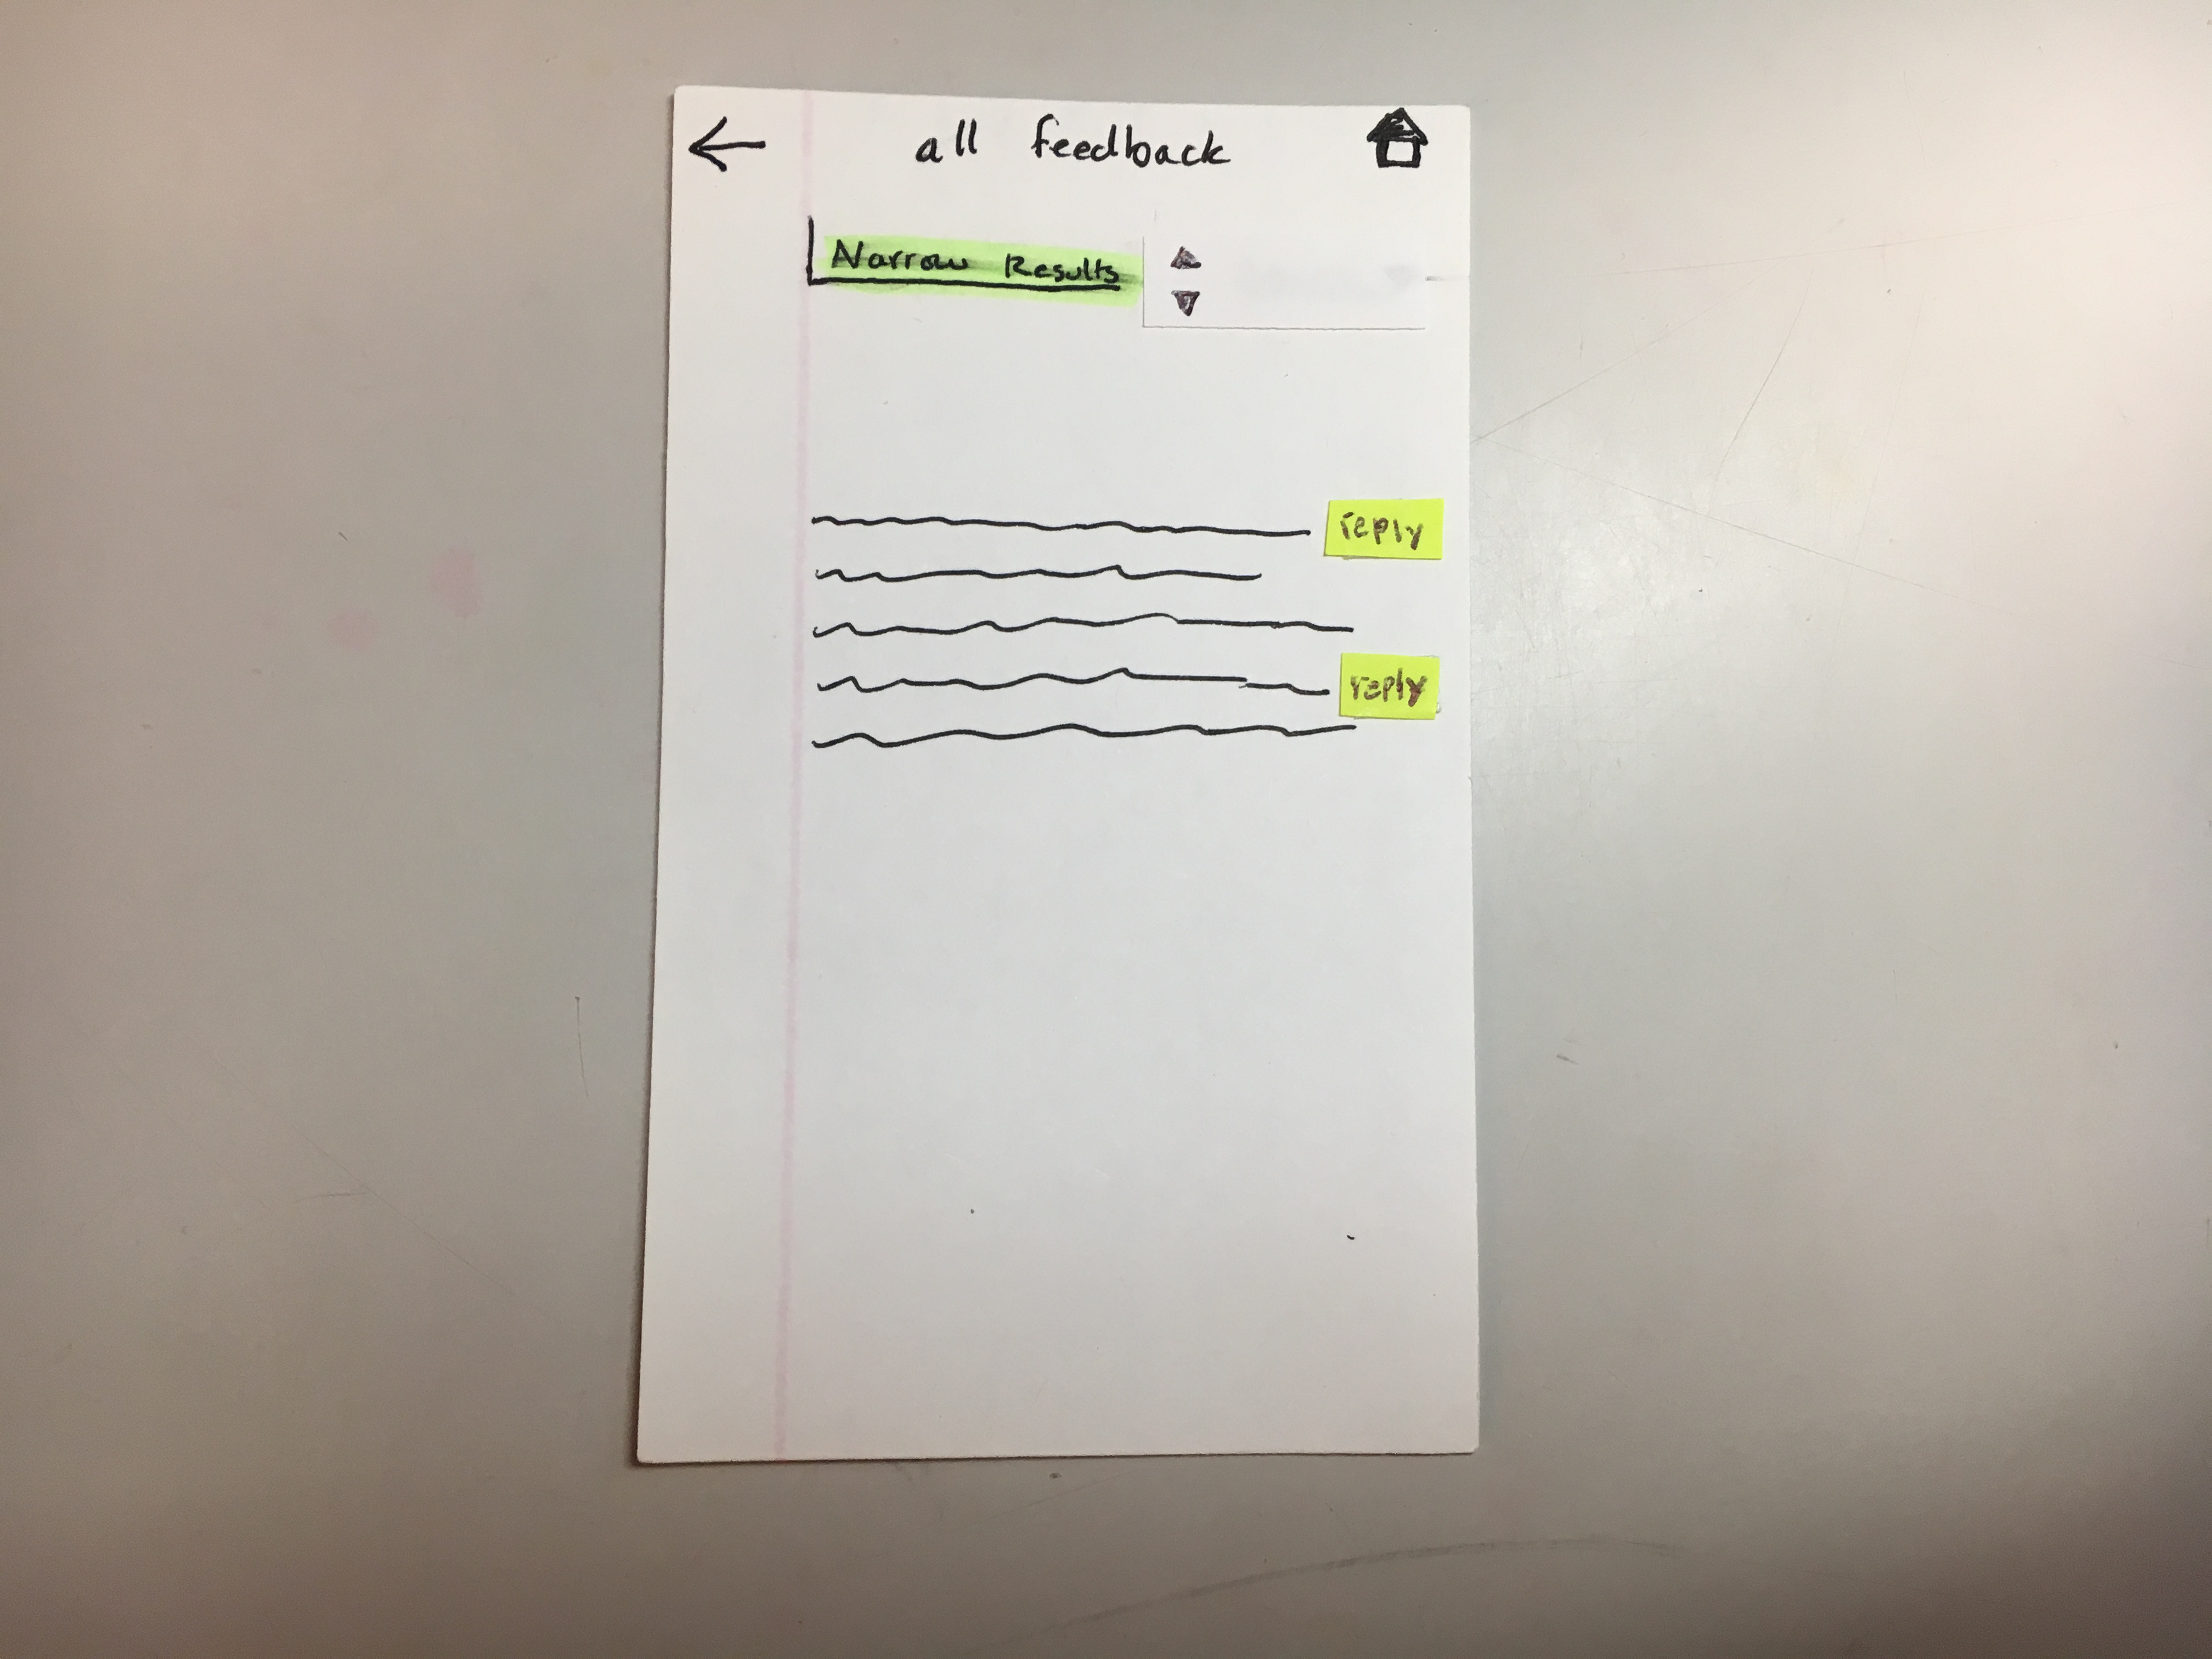 all feedback
Narrow Results
reply
reply